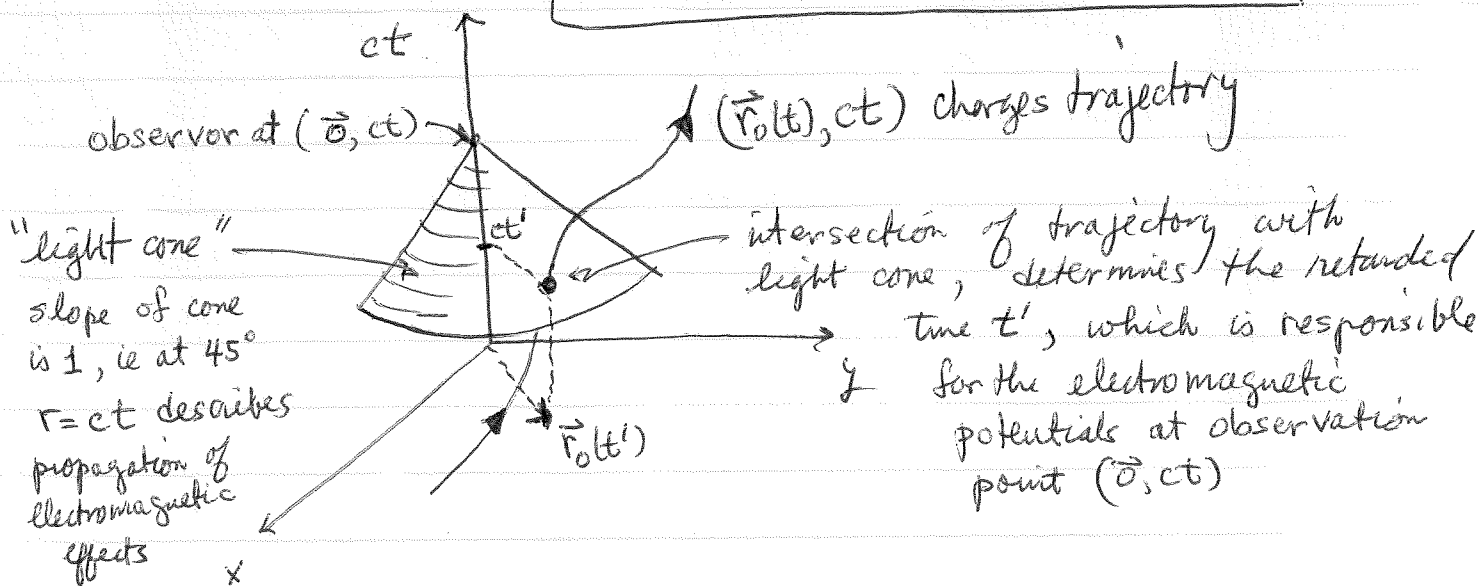 ct
observor at (o⃗, ct)
(r⃗₀(t), ct) charges trajectory
"light cone"
slope of cone
is 1, ie at 45°
r = ct describes
propagation of
electromagnetic
effects
ct'
intersection of trajectory with
light cone, determines the retarded
time t', which is responsible
for the electromagnetic
potentials at observation
point (o⃗, ct)
y
r⃗₀(t')
x